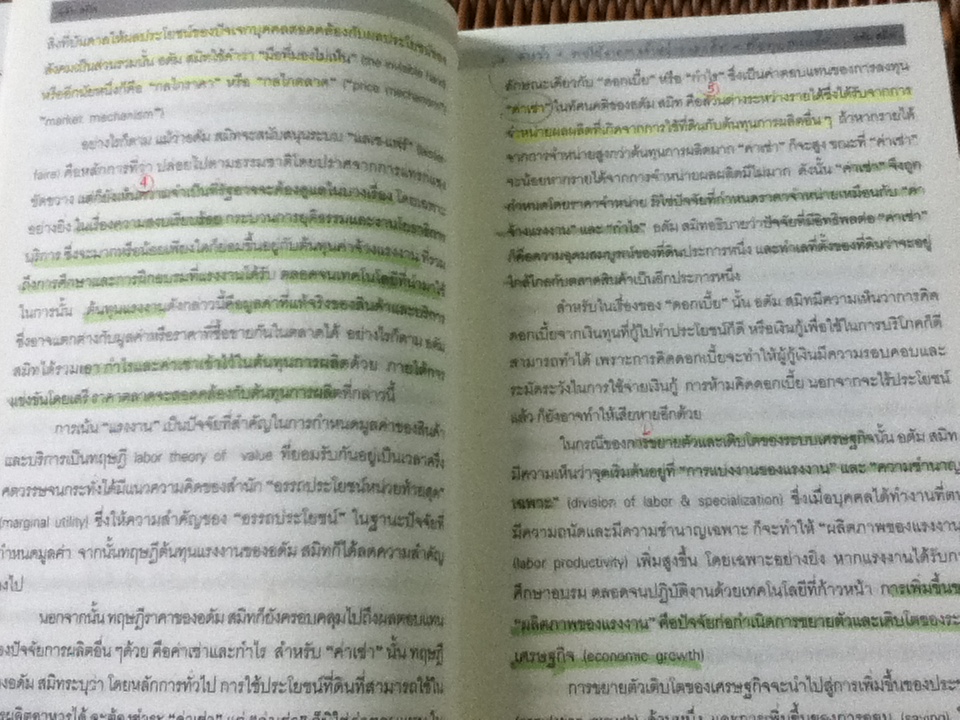 สิ่งที่บันดาลให้ผลประโยชน์ของปัจเจกบุคคลสอดคล้องกับผลประโยชน์ของ
สังคมเป็นส่วนรวมนั้น อดัม สมิทใช้คำว่า "มือที่มองไม่เห็น" (the invisible hand)
หรืออีกนัยหนึ่งก็คือ "กลไกราคา" หรือ "กลไกตลาด" ("price mechanism"
"market mechanism")
อย่างไรก็ตาม แม้ว่าอดัม สมิทจะสนับสนุนระบบ "แลซเซ-แฟร์" (laissez-
faire) คือหลักการที่ว่า ปล่อยไปตามธรรมชาติโดยปราศจากการแทรกแซง
4
ขัดขวาง แต่ก็ยังเห็นความจำเป็นที่รัฐอาจจะต้องดูแลในบางเรื่อง โดยเฉพาะ
อย่างยิ่ง ในเรื่องความสงบเรียบร้อย กระบวนการยุติธรรมและงานโยธาธิการ
บริการ ซึ่งจะมากหรือน้อยเพียงใดก็ย่อมขึ้นอยู่กับต้นทุนค่าจ้างแรงงาน ที่รวม
ถึงการศึกษาและการฝึกอบรมที่แรงงานได้รับ ตลอดจนเทคโนโลยีที่นำมาใช้
ในการนั้น ต้นทุนแรงงานดังกล่าวนี้คือมูลค่าที่แท้จริงของสินค้าและบริการ
ซึ่งอาจแตกต่างกับมูลค่าหรือราคาที่ซื้อขายกันในตลาดได้ อย่างไรก็ตาม อดัม
สมิทได้รวมเอา กำไรและค่าเช่าเข้าไว้ในต้นทุนการผลิตด้วย ภายใต้การ
แข่งขันโดยเสรี ราคาตลาดจะสอดคล้องกับต้นทุนการผลิตที่กล่าวนี้
การเน้น "แรงงาน" เป็นปัจจัยที่สำคัญในการกำหนดมูลค่าของสินค้า
และบริการเป็นทฤษฎี labor theory of value ที่ยอมรับกันอยู่เป็นเวลาครึ่ง
ศตวรรษจนกระทั่งได้มีแนวความคิดของสำนัก "อรรถประโยชน์หน่วยท้ายสุด"
(marginal utility) ซึ่งให้ความสำคัญของ "อรรถประโยชน์" ในฐานะปัจจัยที่
กำหนดมูลค่า จากนั้นทฤษฎีต้นทุนแรงงานของอดัม สมิทก็ได้ลดความสำคัญ
ลงไป
นอกจากนั้น ทฤษฎีราคาของอดัม สมิทก็ยังครอบคลุมไปถึงผลตอบแทน
ของปัจจัยการผลิตอื่น ๆด้วย คือค่าเช่าและกำไร สำหรับ "ค่าเช่า" นั้น ทฤษฎี
ของอดัม สมิทระบุว่า โดยหลักการทั่วไป การใช้ประโยชน์ที่ดินที่สามารถใช้ใน
ลักษณะเดียวกับ "ดอกเบี้ย" หรือ "กำไร" ซึ่งเป็นค่าตอบแทนของการลงทุน
5
"ค่าเช่า" ในทัศนคติของอดัม สมิท คือส่วนต่างระหว่างรายได้ซึ่งได้รับจากการ
จำหน่ายผลผลิตที่เกิดจากการใช้ที่ดินกับต้นทุนการผลิตอื่น ๆ ถ้าหากรายได้
จากการจำหน่ายสูงกว่าต้นทุนการผลิตมาก "ค่าเช่า" ก็จะสูง ขณะที่ "ค่าเช่า"
จะน้อยหากรายได้จากการจำหน่ายผลผลิตมีไม่มาก ดังนั้น "ค่าเช่า" จึงถูก
กำหนดโดยราคาจำหน่าย มิใช่ปัจจัยที่กำหนดราคาจำหน่ายเหมือนกับ "ค่า
จ้างแรงงาน" และ "กำไร" อดัม สมิทอธิบายว่าปัจจัยที่มีอิทธิพลต่อ "ค่าเช่า"
ก็คือความอุดมสมบูรณ์ของที่ดินประการหนึ่ง และทำเลที่ตั้งของที่ดินว่าจะอยู่
ใกล้ไกลกับตลาดสินค้าเป็นอีกประการหนึ่ง
สำหรับในเรื่องของ "ดอกเบี้ย" นั้น อดัม สมิทมีความเห็นว่าการคิด
ดอกเบี้ยจากเงินทุนที่กู้ไปทำประโยชน์ก็ดี หรือเงินกู้เพื่อใช้ในการบริโภคก็ดี
สามารถทำได้ เพราะการคิดดอกเบี้ยจะทำให้ผู้กู้เงินมีความรอบคอบและ
ระมัดระวังในการใช้จ่ายเงินกู้ การห้ามคิดดอกเบี้ย นอกจากจะไร้ประโยชน์
แล้ว ก็ยังอาจทำให้เสียหายอีกด้วย
1
ในกรณีของการขยายตัวและเติบโตของระบบเศรษฐกิจนั้น อดัม สมิท
มีความเห็นว่าจุดเริ่มต้นอยู่ที่ "การแบ่งงานของแรงงาน" และ "ความชำนาญ
เฉพาะ" (division of labor & specialization) ซึ่งเมื่อบุคคลได้ทำงานที่ตน
มีความถนัดและมีความชำนาญเฉพาะ ก็จะทำให้ "ผลิตภาพของแรงงาน
(labor productivity) เพิ่มสูงขึ้น โดยเฉพาะอย่างยิ่ง หากแรงงานได้รับการ
ศึกษาอบรม ตลอดจนปฏิบัติงานด้วยเทคโนโลยีที่ก้าวหน้า การเพิ่มขึ้นของ
"ผลิตภาพของแรงงาน" คือปัจจัยก่อกำเนิดการขยายตัวและเติบโตของระบบ
เศรษฐกิจ (economic growth)
การขยายตัวเติบโตของเศรษฐกิจจะนำไปสู่การเพิ่มขึ้นของประ